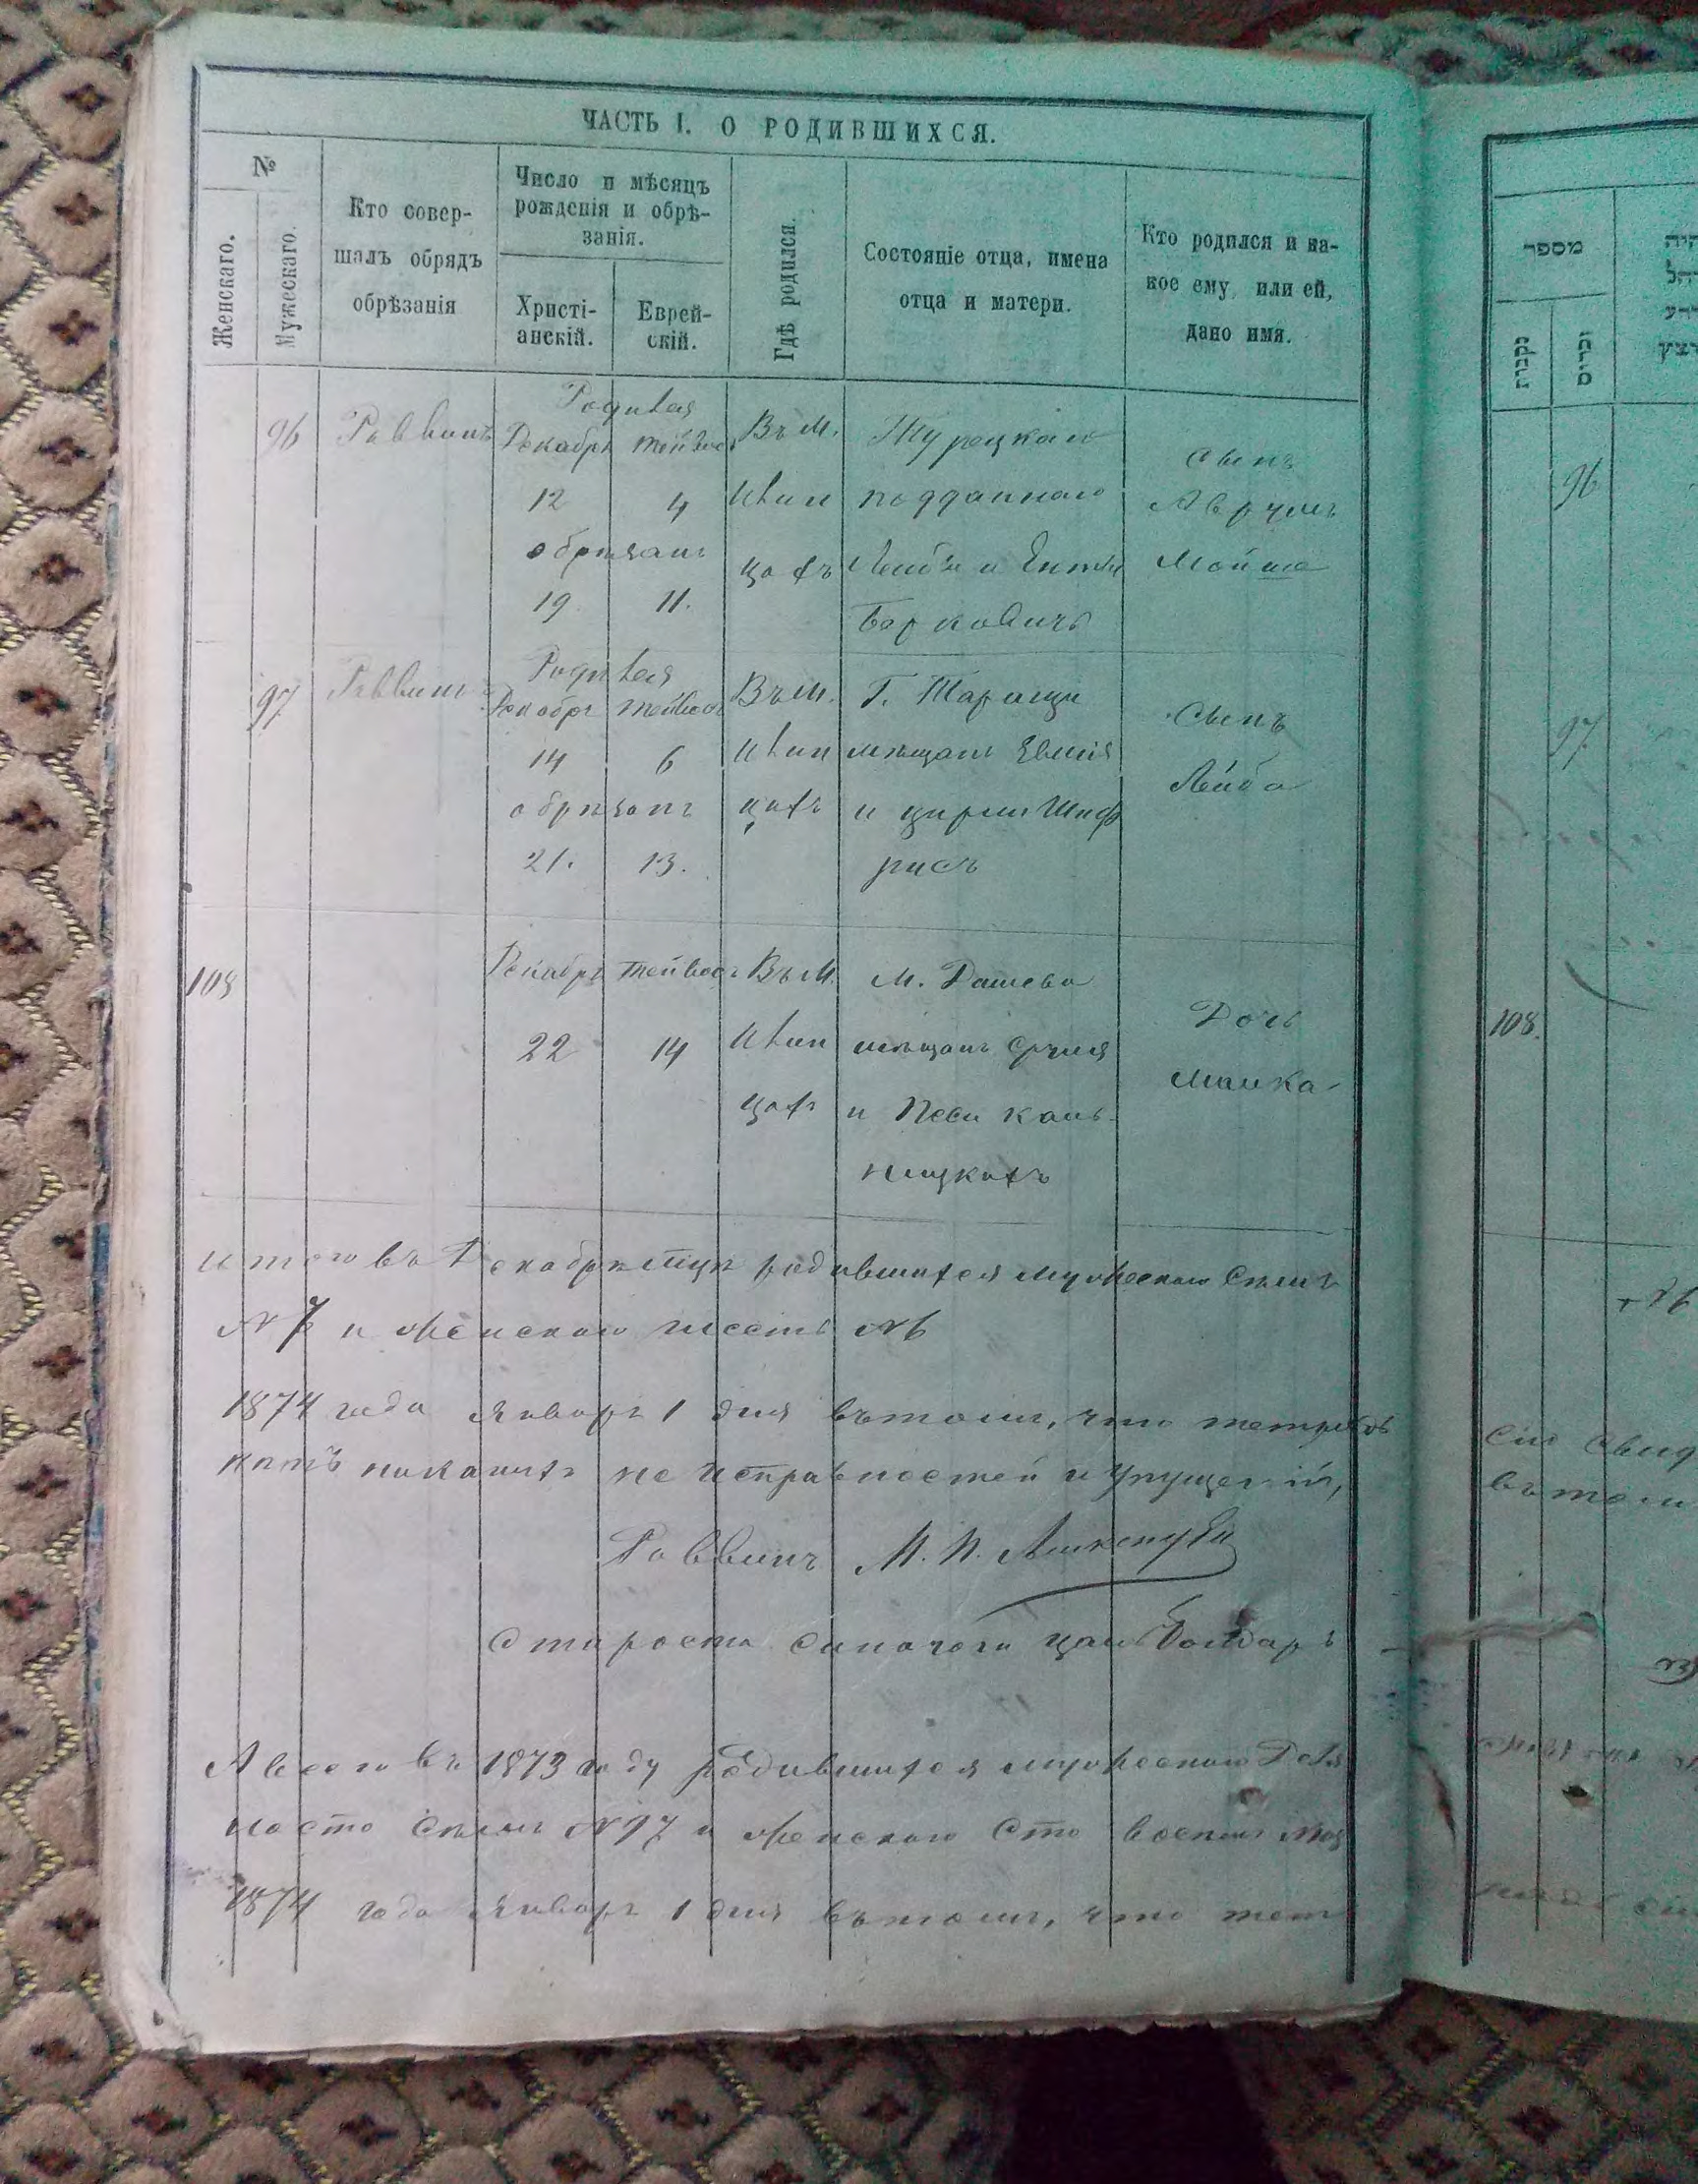 ЧАСТЬ I. О РОДИВШИХСЯ.
№
Женскаго.
Мужескаго.
Кто совер-
шалъ обрядъ
обрѣзанія
Число и мѣсяцъ
рожденія и обрѣ-
занія.
Христі-
анскій.
Еврей-
скій.
Гдѣ родился.
Состояніе отца, имена
отца и матери.
Кто родился и ка-
кое ему, или ей,
дано имя.
96
Раввинъ
Родился
Декабря Тейвес
12 4
обрѣзанъ
19. 11.
Въ М.
Ивни
цахъ
Турецкаго
подданнаго
Лейбы и Енты
Берковичъ
Сынъ
Аврумъ
Мойше
97
Раввинъ
Родился
Декабря Тейвесъ
14 6
обрѣзанъ
21. 13.
Въ М.
Ивни
цахъ
Г. Таращи
мѣщанъ
и Цирли Шиф
рисъ
Сынъ
Лейба
108
Декабря Тейвесъ
22 14
Въ М.
Ивни
цахъ
М. Дашева
мѣщанъ Сруля
и Песи Каль-
ницкихъ
Дочь
Малка
Итого въ Декабрѣ родившихся мужескаго Семь
№ 7 и женскаго шесть №6
1874 года Январь 1 дня въ томъ, что
нѣтъ никакихъ не исправностей и упущеній,
Раввинъ М. И.
Староста Синагоги
А всего въ 1873 году родившихся мужескаго Девя
носто Семь №97 и женскаго Сто восемь
1874 года Январь 1 дня въ томъ, что тет
מספר
נקבות
זכרים
96
97
108.
Сіе Свид
въ томъ